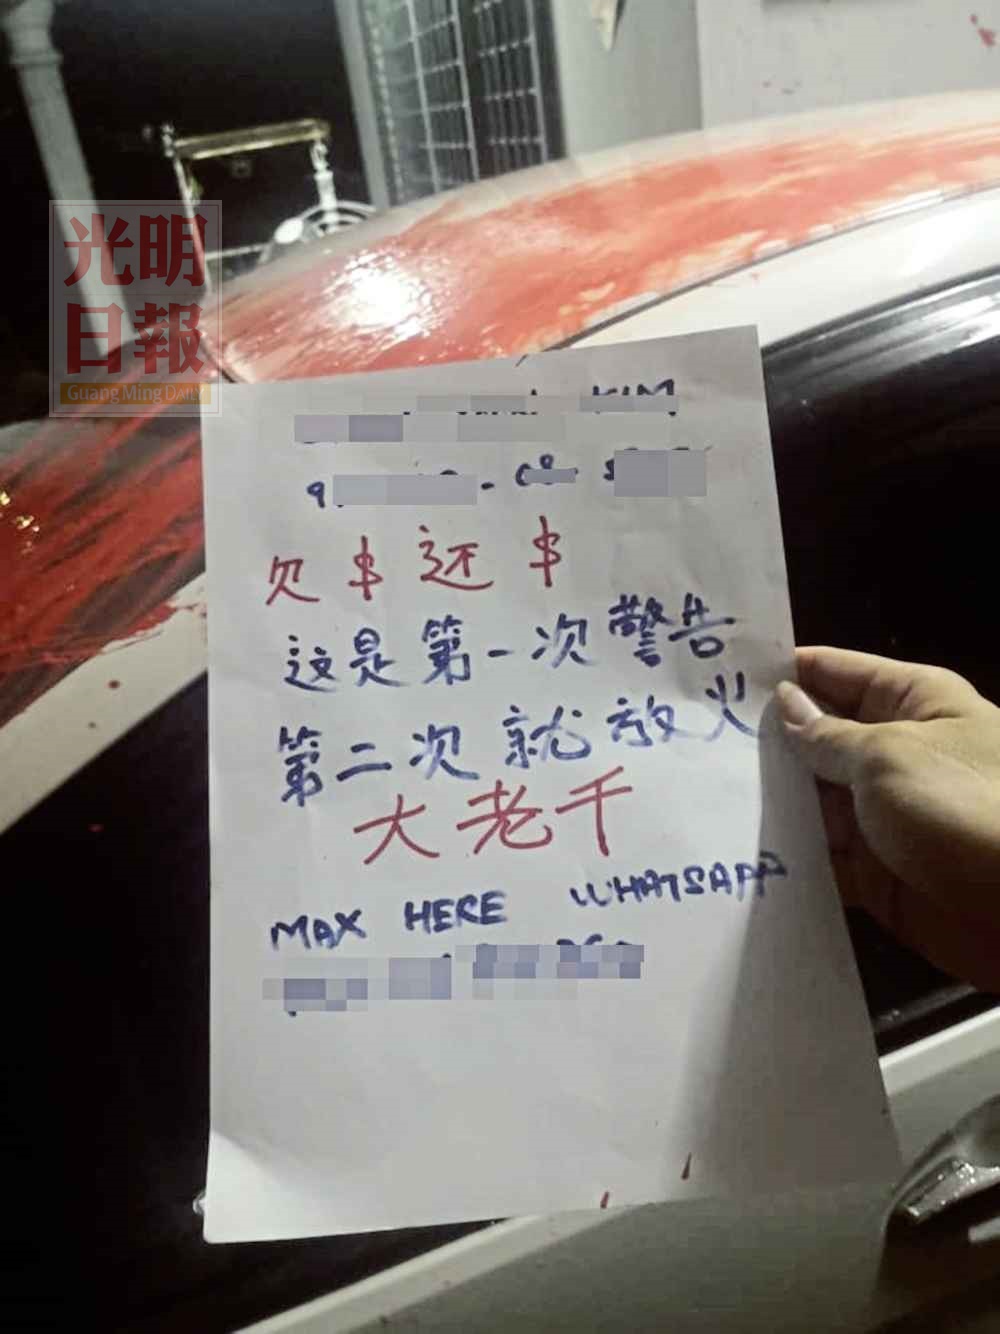 光明
日報
Guang Ming Daily
KIM
欠 $ 还 $
这是第一次警告
第二次就放火
大老千
MAX HERE WHATSAPP